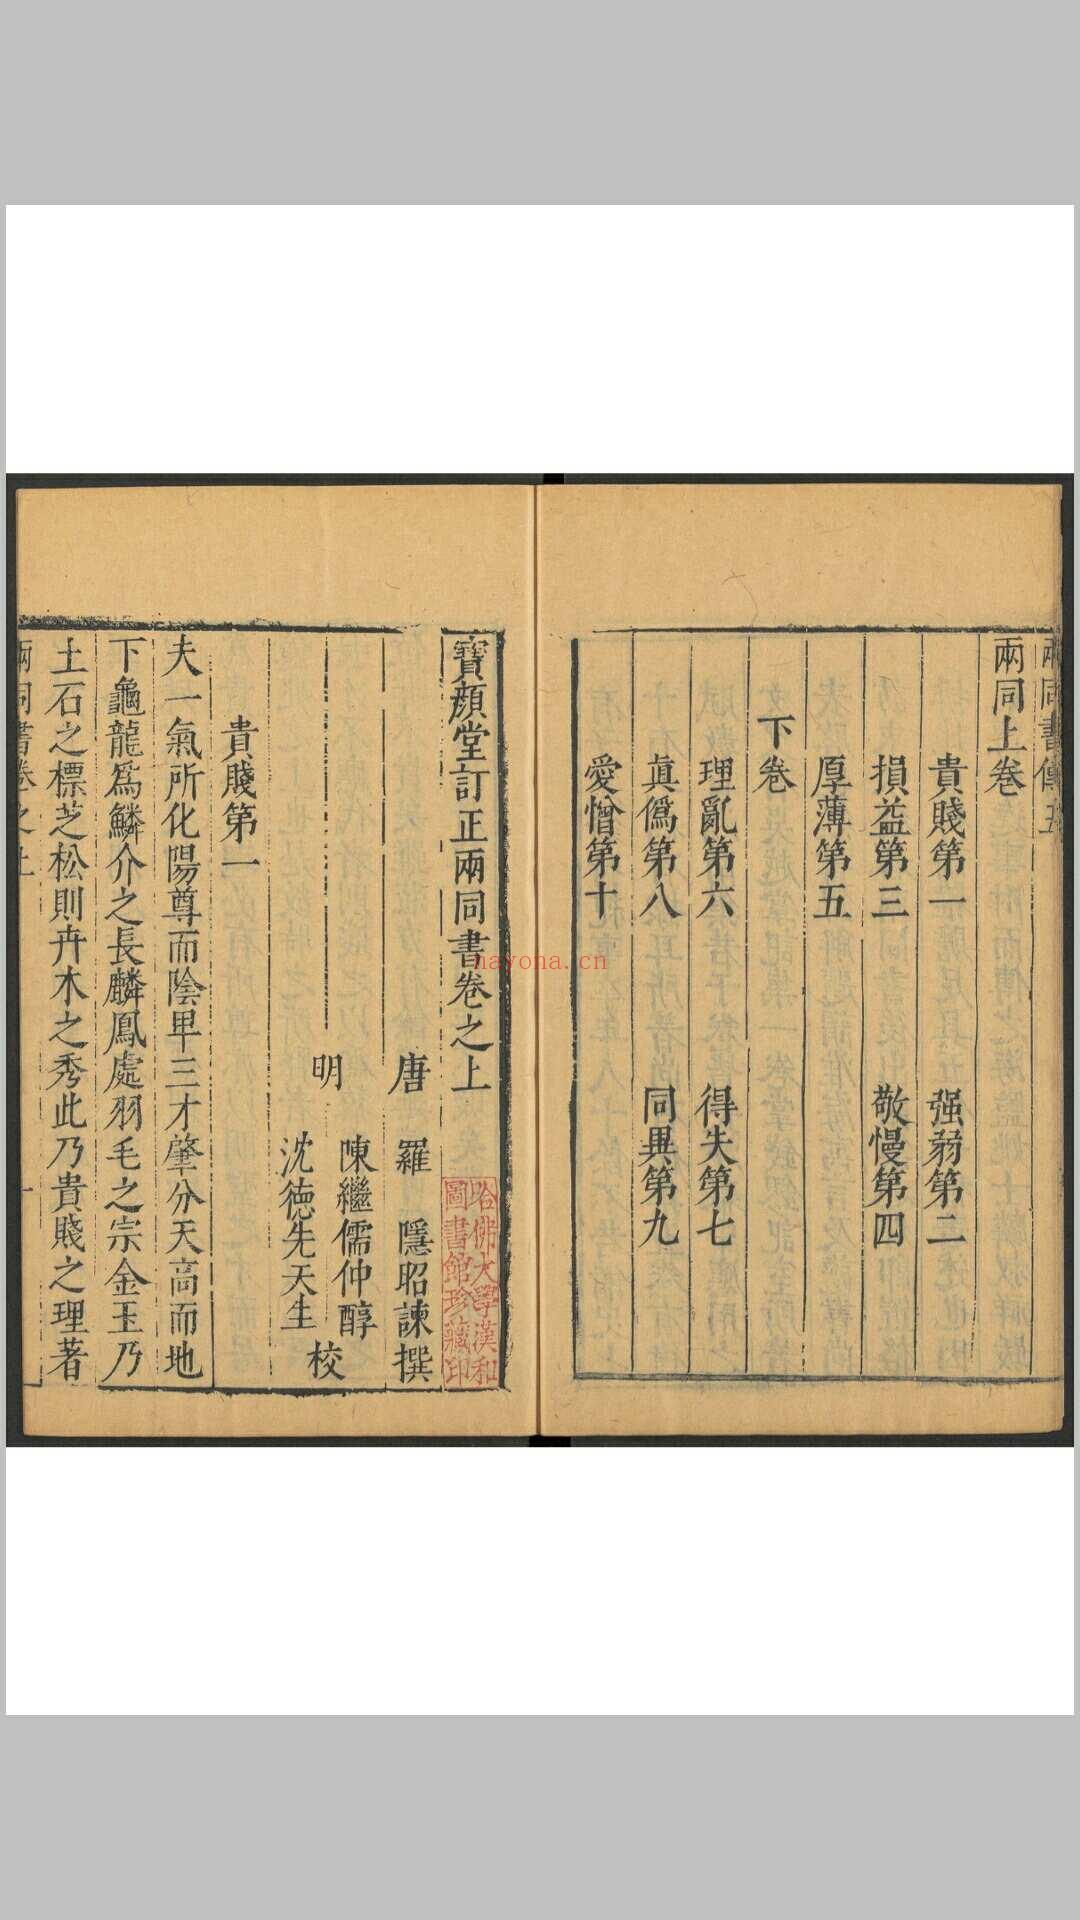 兩同上卷
貴賤第一　强弱第二
損益第三　敬慢第四
厚薄第五
下卷
理亂第六　得失第七
眞僞第八　同異第九
愛憎第十
寶顏堂訂正兩同書卷之上
唐　羅　隱昭諫撰
明　陳繼儒仲醇
沈德先天生　校
貴賤第一
夫一氣所化陽尊而陰卑三才肇分天高而地
下龜龍爲鱗介之長麟鳳處羽毛之宗金玉乃
土石之標芝松則卉木之秀此乃貴賤之理著
兩同書卷之上　一
哈佛大學漢和
圖書館珍藏印
nayona.cn